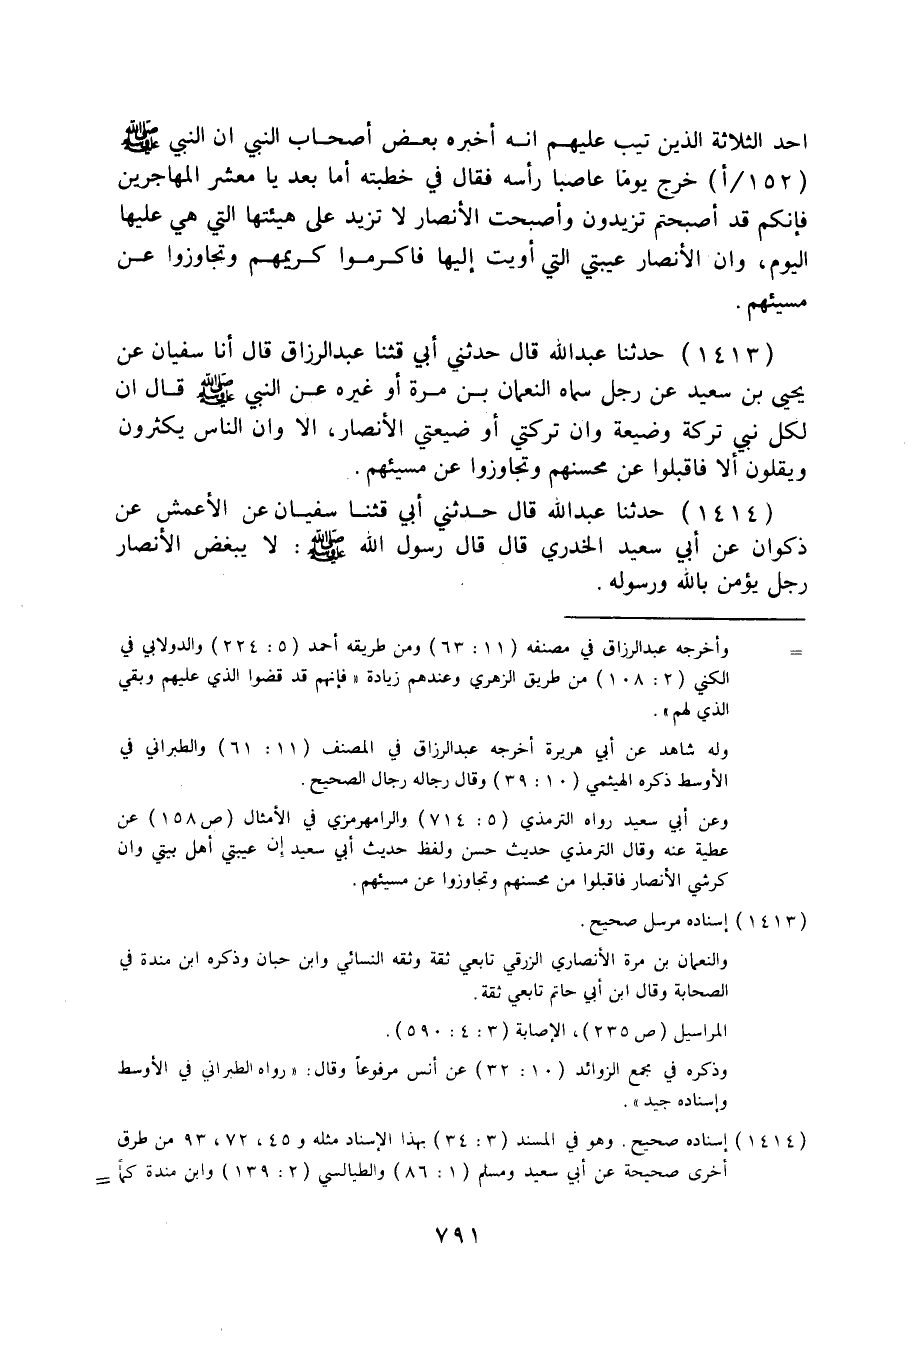 احد الثلاثة الذين تيب عليهم انه أخبره بعض أصحاب النبي ان النبي ﷺ
(١٥٢/أ) خرج يومًا عاصبا رأسه فقال في خطبته أما بعد يا معشر المهاجرين
فإنكم قد أصبحتم تزيدون وأصبحت الأنصار لا تزيد على هيئتها التي هي عليها
اليوم، وان الأنصار عيبتي التي أويت إليها فاكرموا كريمهم وتجاوزوا عن
مسيئهم .
(١٤١٣) حدثنا عبدالله قال حدثني أبي قثنا عبدالرزاق قال أنا سفيان عن
يحيى بن سعيد عن رجل سماه النعمان بن مرة أو غيره عن النبي ﷺ قال ان
لكل نبي تركة وضيعة وان تركتي أو ضيعتي الأنصار، الا وان الناس يكثرون
ويقلون ألا فاقبلوا عن محسنهم وتجاوزوا عن مسيئهم .
(١٤١٤) حدثنا عبدالله قال حدثني أبي قثنا سفيان عن الأعمش عن
ذكوان عن أبي سعيد الخدري قال قال رسول الله ﷺ : لا يبغض الأنصار
رجل يؤمن بالله ورسوله .
= وأخرجه عبدالرزاق في مصنفه (١١ : ٦٣) ومن طريقه أحمد (٥ : ٢٢٤) والدولابي في
الكني (٢ : ١٠٨) من طريق الزهري وعندهم زيادة « فإنهم قد قضوا الذي عليهم وبقي
الذي لهم» .
وله شاهد عن أبي هريرة أخرجه عبدالرزاق في المصنف (١١ : ٦١) والطبراني في
الأوسط ذكره الهيثمي (١٠ : ٣٩) وقال رجاله رجال الصحيح .
وعن أبي سعيد رواه الترمذي (٥ : ٧١٤) والرامهرمزي في الأمثال (ص ١٥٨) عن
عطية عنه وقال الترمذي حديث حسن ولفظ حديث أبي سعيد إن عيبتي أهل بيتي وان
كرشي الأنصار فاقبلوا من محسنهم وتجاوزوا عن مسيئهم .
(١٤١٣) إسناده مرسل صحيح .
والنعمان بن مرة الأنصاري الزرقي تابعي ثقة وثقه النسائي وابن حبان وذكره ابن مندة في
الصحابة وقال ابن أبي حاتم تابعي ثقة .
المراسيل (ص ٢٣٥)، الإصابة (٣ : ٤ : ٥٩٠) .
وذكره في مجمع الزوائد (١٠ : ٣٢) عن أنس مرفوعاً وقال : « رواه الطبراني في الأوسط
وإسناده جيد » .
(١٤١٤) إسناده صحيح . وهو في المسند (٣ : ٣٤) بهذا الإسناد مثله و ٤٥ ، ٧٢ ، ٩٣ من طرق
أخرى صحيحة عن أبي سعيد ومسلم (١ : ٨٦) والطيالسي (٢ : ١٣٩) وابن مندة كما =
٧٩١